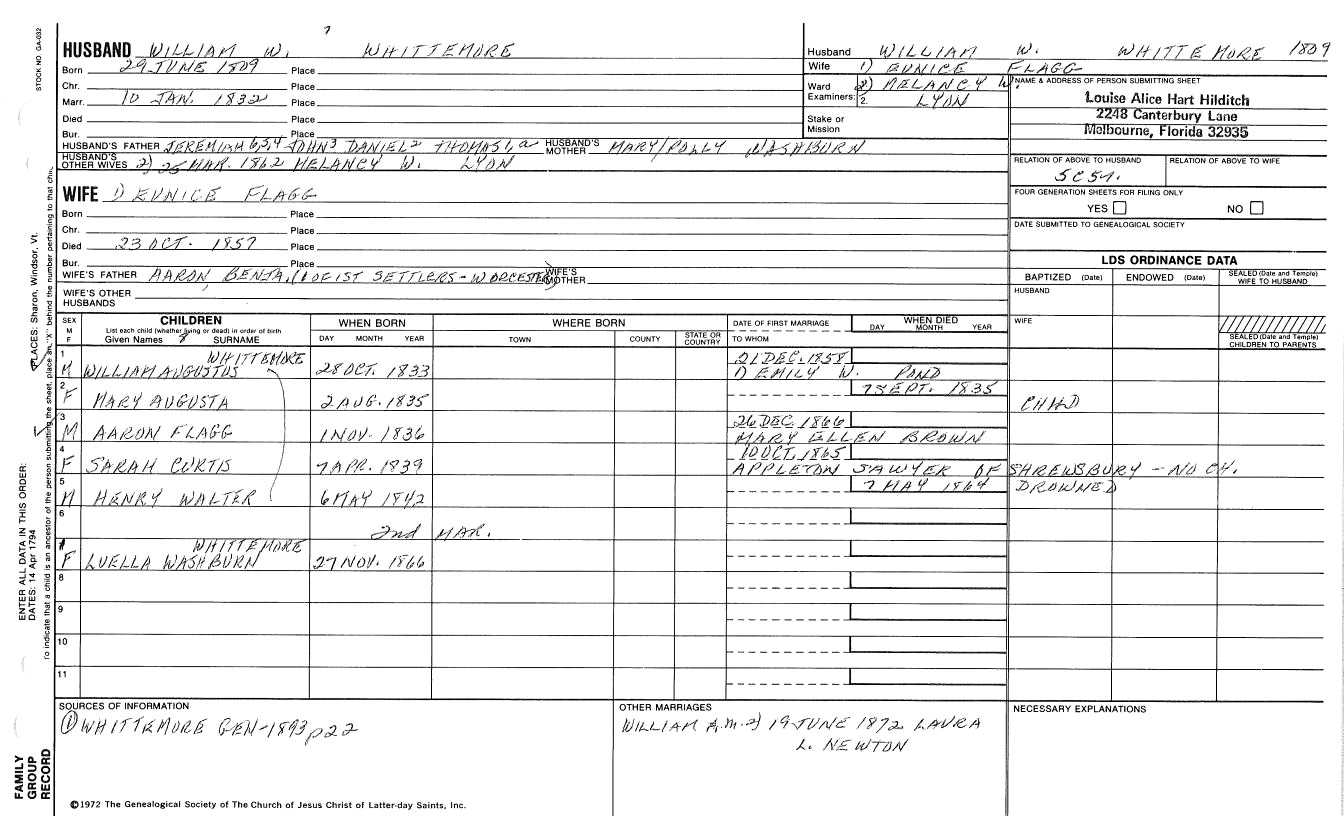 STOCK NO GA-032
PLACES: Sharon, Windsor, Vt.
ENTER ALL DATA IN THIS ORDER:
DATES: 14 Apr 1794
To indicate that a child is an ancestor of the person submitting the sheet, place an "X" behind the number pertaining to that chi
FAMILY GROUP RECORD
HUSBAND WILLIAM W. WHITTEMORE
Born 29 JUNE 1809 Place
Chr. Place
Marr. 10 JAN. 1832 Place
Died Place
Bur. Place
HUSBAND'S FATHER JEREMIAH 6,5,4 JOHN3 DANIEL2 THOMAS1,a HUSBAND'S MOTHER MARY/POLLY WASHBURN
HUSBAND'S OTHER WIVES 2) 25 MAR. 1862 MELANCY W. LYON
WIFE 1) EUNICE FLAGG
Born Place
Chr. Place
Died 23 OCT. 1857 Place
Bur. Place
WIFE'S FATHER AARON, BENJA. (1 OF 1ST SETTLERS - WORCESTER) WIFE'S MOTHER
WIFE'S OTHER HUSBANDS
Husband WILLIAM W. WHITTEMORE 1809
Wife 1) EUNICE FLAGG
Ward 2) MELANCY W.
Examiners: 2. LYON
Stake or Mission
NAME & ADDRESS OF PERSON SUBMITTING SHEET
Louise Alice Hart Hilditch
2248 Canterbury Lane
Melbourne, Florida 32935
RELATION OF ABOVE TO HUSBAND RELATION OF ABOVE TO WIFE
5C5r.
FOUR GENERATION SHEETS FOR FILING ONLY
YES NO
DATE SUBMITTED TO GENEALOGICAL SOCIETY
LDS ORDINANCE DATA
BAPTIZED (Date) ENDOWED (Date) SEALED (Date and Temple) WIFE TO HUSBAND
HUSBAND
WIFE
SEALED (Date and Temple) CHILDREN TO PARENTS
SEX M F CHILDREN WHEN BORN WHERE BORN DATE OF FIRST MARRIAGE WHEN DIED
List each child (whether living or dead) in order of birth
Given Names SURNAME DAY MONTH YEAR TOWN COUNTY STATE OR COUNTRY TO WHOM DAY MONTH YEAR
1 WHITTEMORE 21 DEC. 1858
M WILLIAM AUGUSTUS 28 OCT. 1833 1) EMILY W. POND
2 7 SEPT. 1835
F MARY AUGUSTA 2 AUG. 1835 CHILD
3 26 DEC. 1866
M AARON FLAGG 1 NOV. 1836 MARY ELLEN BROWN
4 10 OCT. 1865
F SARAH CURTIS 7 APR. 1839 APPLETON SAWYER OF SHREWSBURY - NO CH.
5 7 MAY 1864 DROWNED
M HENRY WALTER 6 MAY 1842
6
2nd MAR.
WHITTEMORE
F LUELLA WASHBURN 27 NOV. 1866
8
9
10
11
SOURCES OF INFORMATION
① WHITTEMORE GEN-1893 p22
OTHER MARRIAGES
WILLIAM A. M. 2) 19 JUNE 1872 LAURA
L. NEWTON
NECESSARY EXPLANATIONS
©1972 The Genealogical Society of The Church of Jesus Christ of Latter-day Saints, Inc.